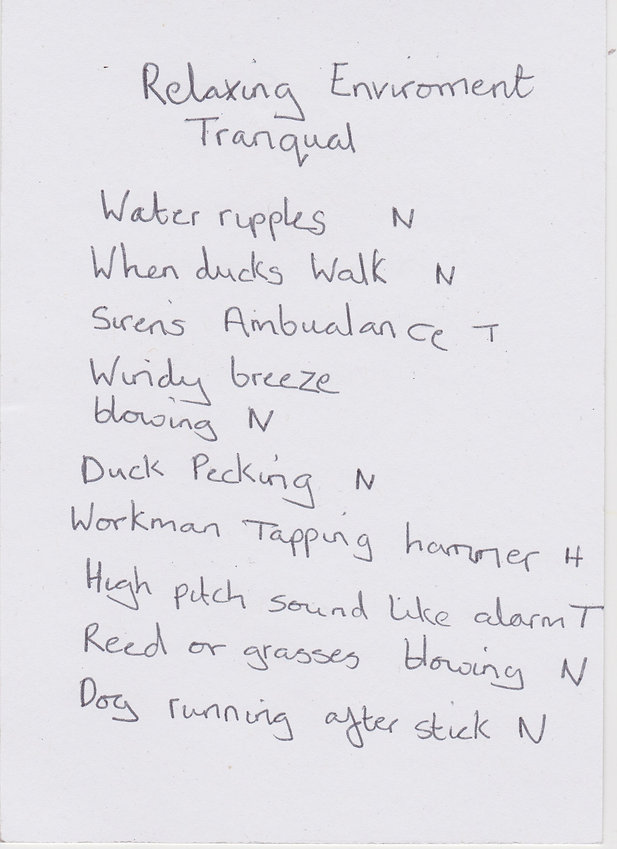 Relaxing Enviroment
Tranqual
Water rupples N
When ducks Walk N
Sirens Ambualance T
Windy breeze
blowing N
Duck Pecking N
Workman Tapping hammer H
High pitch sound like alarm T
Reed or grasses blowing N
Dog running after stick N